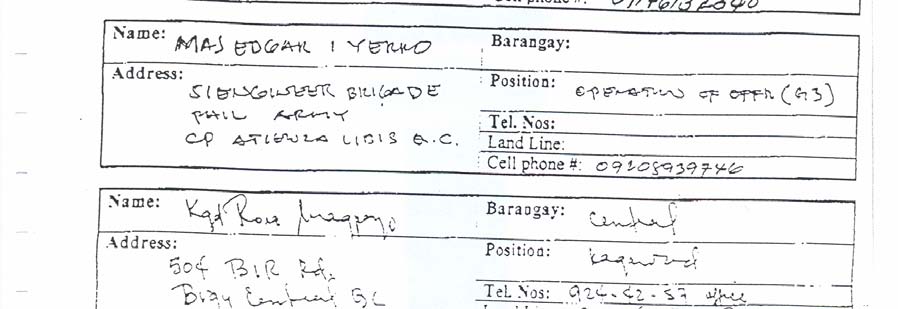 Cell phone #:
Name: MAJ EDGAR I YERRO
Barangay:
Address: 51 ENGINEER BRIGADE
PHIL ARMY
CP ATIENZA LIBIS Q.C.
Position: OPERATION OF OFFR (G3)
Tel. Nos:
Land Line:
Cell phone #: 09205939746
Name: Kgd Rosa
Barangay: Central
Address: 504 BIR Rd.
Brgy Central QC
Position: Kagawad
Tel. Nos: 924-42-57 office